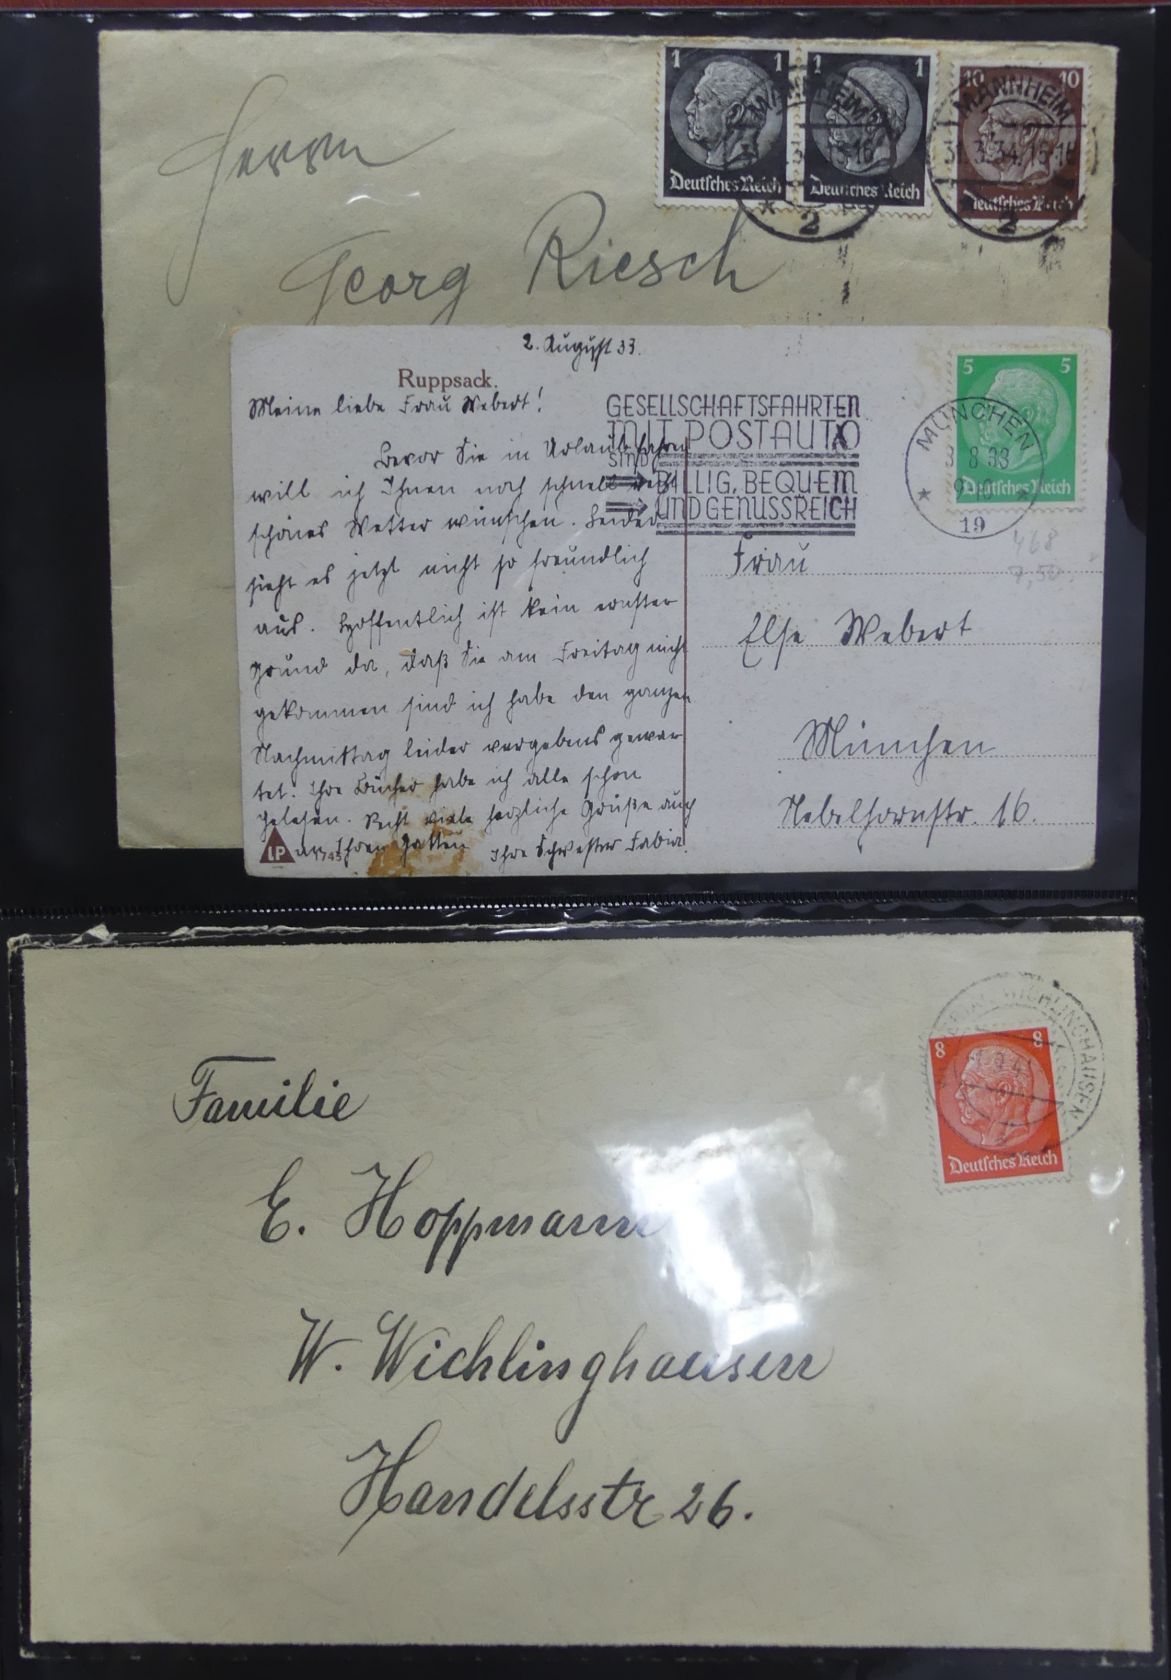 Herrn
Georg Riesch
1 1
Deutsches Reich
1 1
Deutsches Reich
MANNHEIM
15-16
2
10 10
Deutsches Reich
MANNHEIM
31.3.34.15-16
2
2. August 33.
Ruppsack.
Meine liebe Frau Webert!
Bevor Sie in Urlaub fahren
will ich Ihnen noch schnell recht
schönes Wetter wünschen. Leider
sieht es jetzt nicht so freundlich
aus. Hoffentlich ist kein ernster
Grund da, daß Sie am Freitag nicht
gekommen sind ich habe den ganzen
Nachmittag leider vergebens gewar
tet. Ihre Bücher habe ich alle schon
gelesen. Recht viele herzliche Grüße auch
an Ihren Gatten Ihre Schwester Fabia.
LP
1745
GESELLSCHAFTSFAHRTEN
MIT POSTAUTO
SIND
BILLIG, BEQUEM
UND GENUSSREICH
5 5
Deutsches Reich
MÜNCHEN
8 33
19
468
7,50
Frau
Else Webert
München
Nebelhornstr. 16.
8 8
Deutsches Reich
WICHLINGHAUSEN
Familie
E. Hoppmann
W. Wichlinghausen
Handelsstr 26.